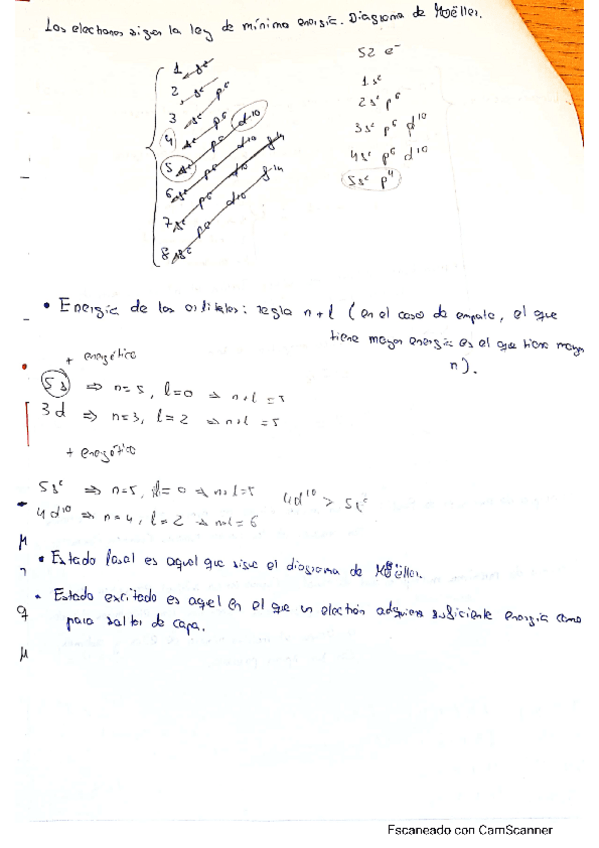 Los electrones siguen la ley de mínima energía. Diagrama de Möeller.
52 e⁻
1 s²
2 s² p⁶
3 s² p⁶ d¹⁰
4 s² p⁶ d¹⁰
5 s² p⁶ d¹⁰ f¹⁴
6 s² p⁶ d¹⁰ f¹⁴
7 s² p⁶ d¹⁰
8 s²
1s²
2s² p⁶
3s² p⁶ d¹⁰
4s² p⁶ d¹⁰
5s² p⁴
• Energía de los orbitales: regla n+l (en el caso de empate, el que
tiene mayor energía es el que tiene mayor
n).
+ energético
5s ⇒ n=5, l=0 ⇒ n+l=5
3d ⇒ n=3, l=2 ⇒ n+l=5
+ energético
5s² ⇒ n=5, l=0 ⇒ n+l=5
4d¹⁰ > 5s²
4d¹⁰ ⇒ n=4, l=2 ⇒ n+l=6
• Estado basal es aquel que sigue el diagrama de Möeller.
• Estado excitado es aquel en el que un electrón adquiere suficiente energía como
para saltar de capa.
Escaneado con CamScanner